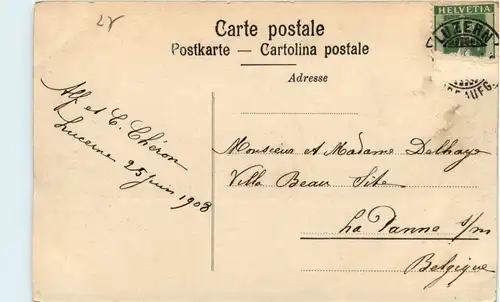 28
Carte postale
Postkarte — Cartolina postale
Adresse
HELVETIA
LUZERN
BRF.AUFG.
Alf et C. Chéron
Lucerne 25 juin 1908
Monsieur et Madame Delhaye
Villa Beau Site
La Panne s/m
Belgique